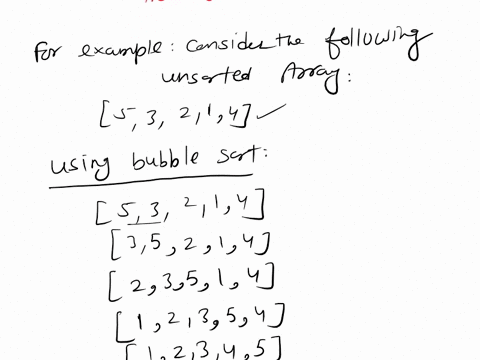 For example: Consider the following
unsorted Array:
[5, 3, 2, 1, 4] ✓
using bubble sort:
[5, 3, 2, 1, 4]
[3, 5, 2, 1, 4]
[2, 3, 5, 1, 4]
[1, 2, 3, 5, 4]
[1, 2, 3, 4, 5]